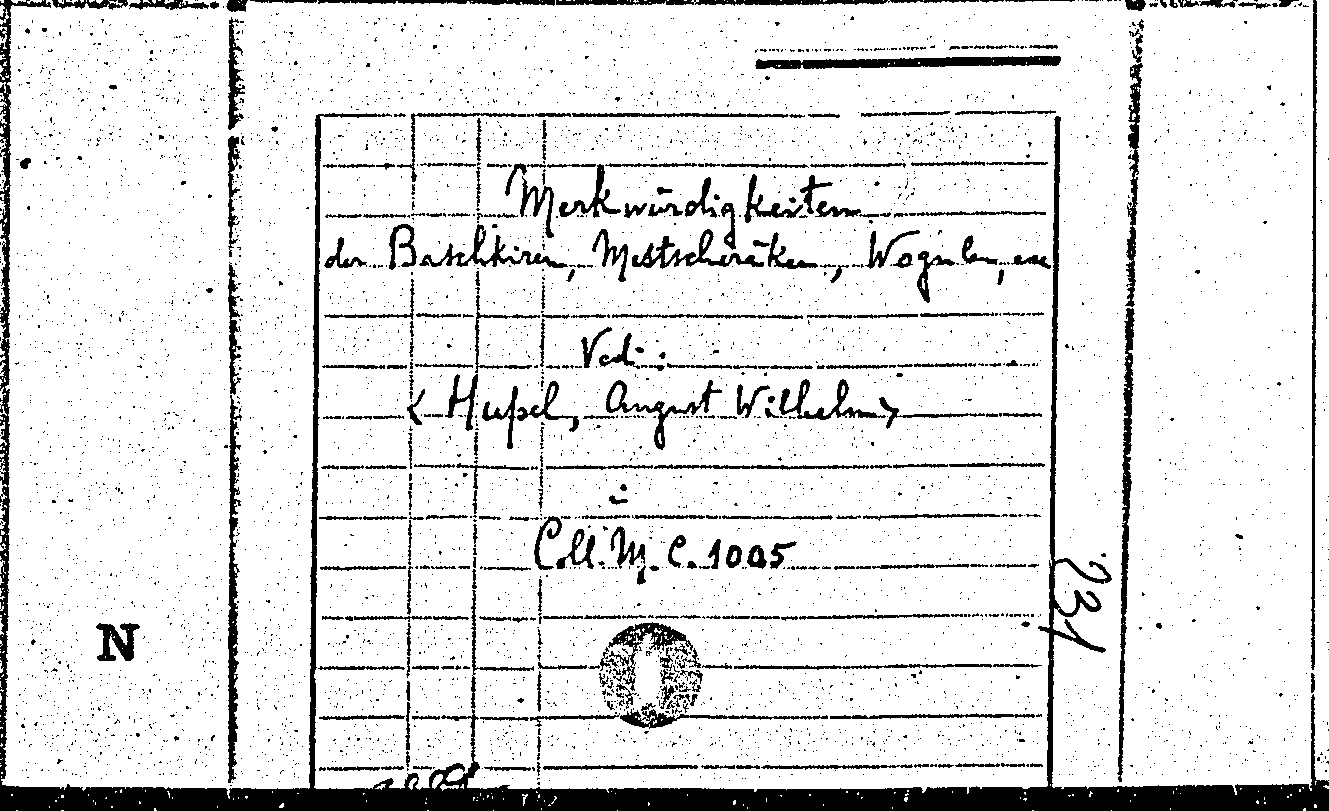 Merkwürdigkeiten
der Baschkiren, Mestscheräken, Wogulen,
Ved. :
< Hupel, August Wilhelm >
Coll. M. C. 1005
231
N